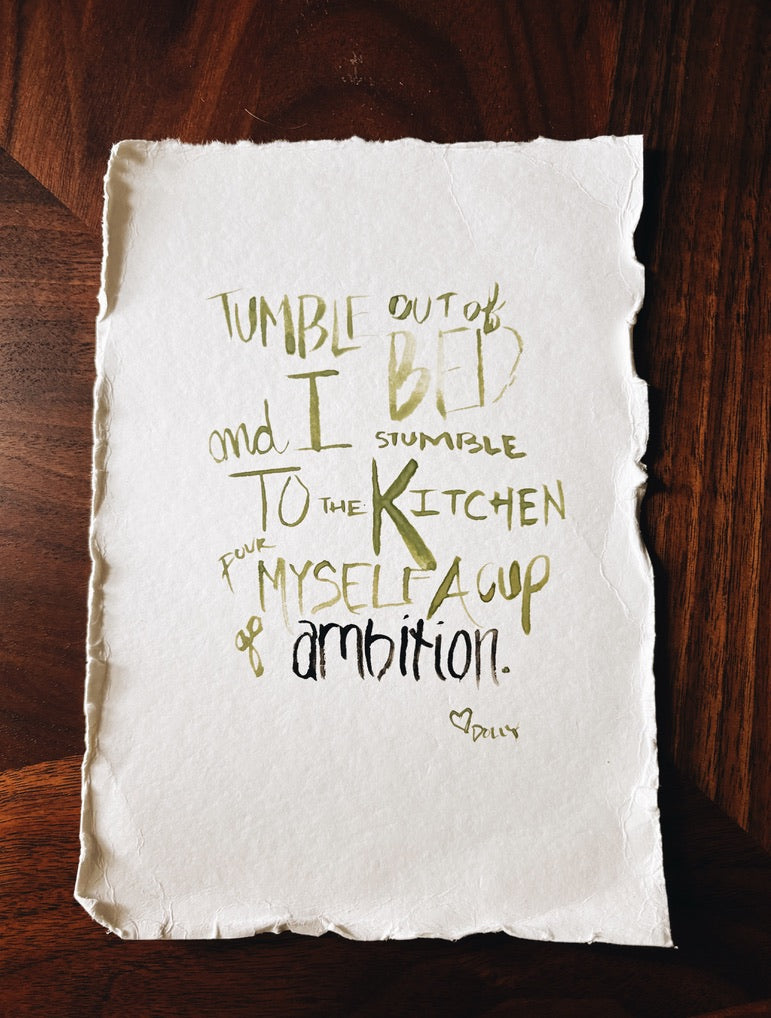 TUMBLE OUT of
BED
and I STUMBLE
TO THE KITCHEN
FOUR MYSELF A CUP
of ambition.
♡DOLLY